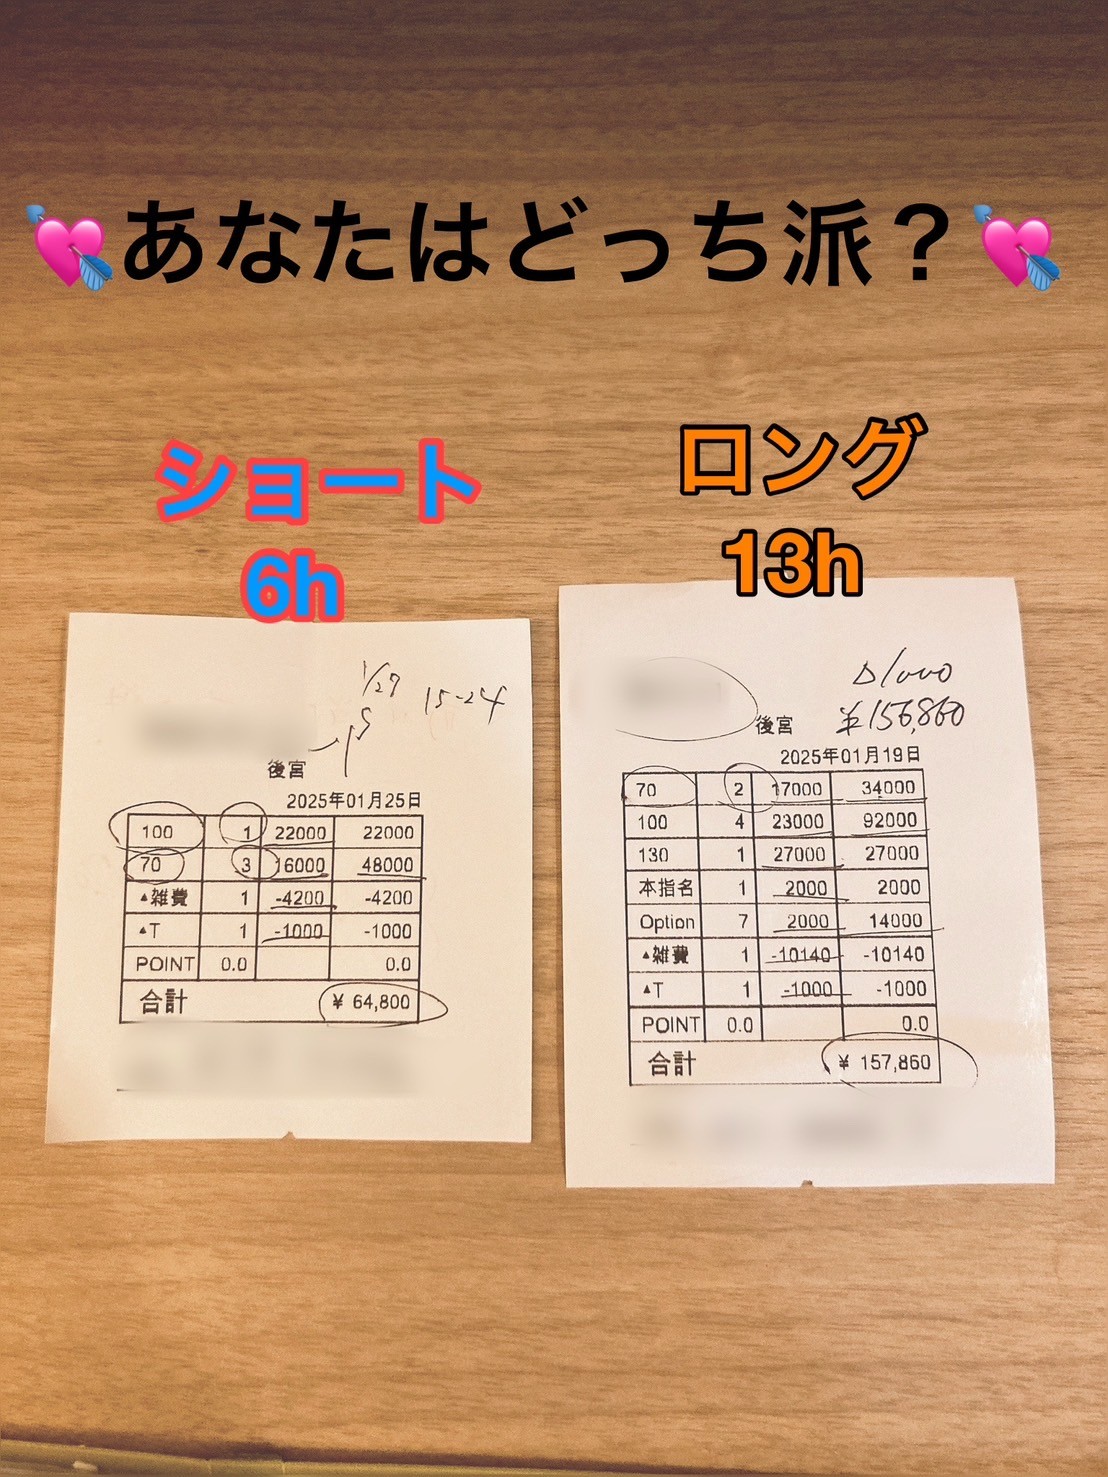 💘あなたはどっち派？💘
ショート
6h
1/27 15-24
後宮
2025年01月25日
100 1 22000 22000
70 3 16000 48000
▲雑費 1 -4200 -4200
▲T 1 -1000 -1000
POINT 0.0 0.0
合計 ¥ 64,800
ロング
13h
△1000
後宮 ¥156,860
2025年01月19日
70 2 17000 34000
100 4 23000 92000
130 1 27000 27000
本指名 1 2000 2000
Option 7 2000 14000
▲雑費 1 -10140 -10140
▲T 1 -1000 -1000
POINT 0.0 0.0
合計 ¥ 157,860